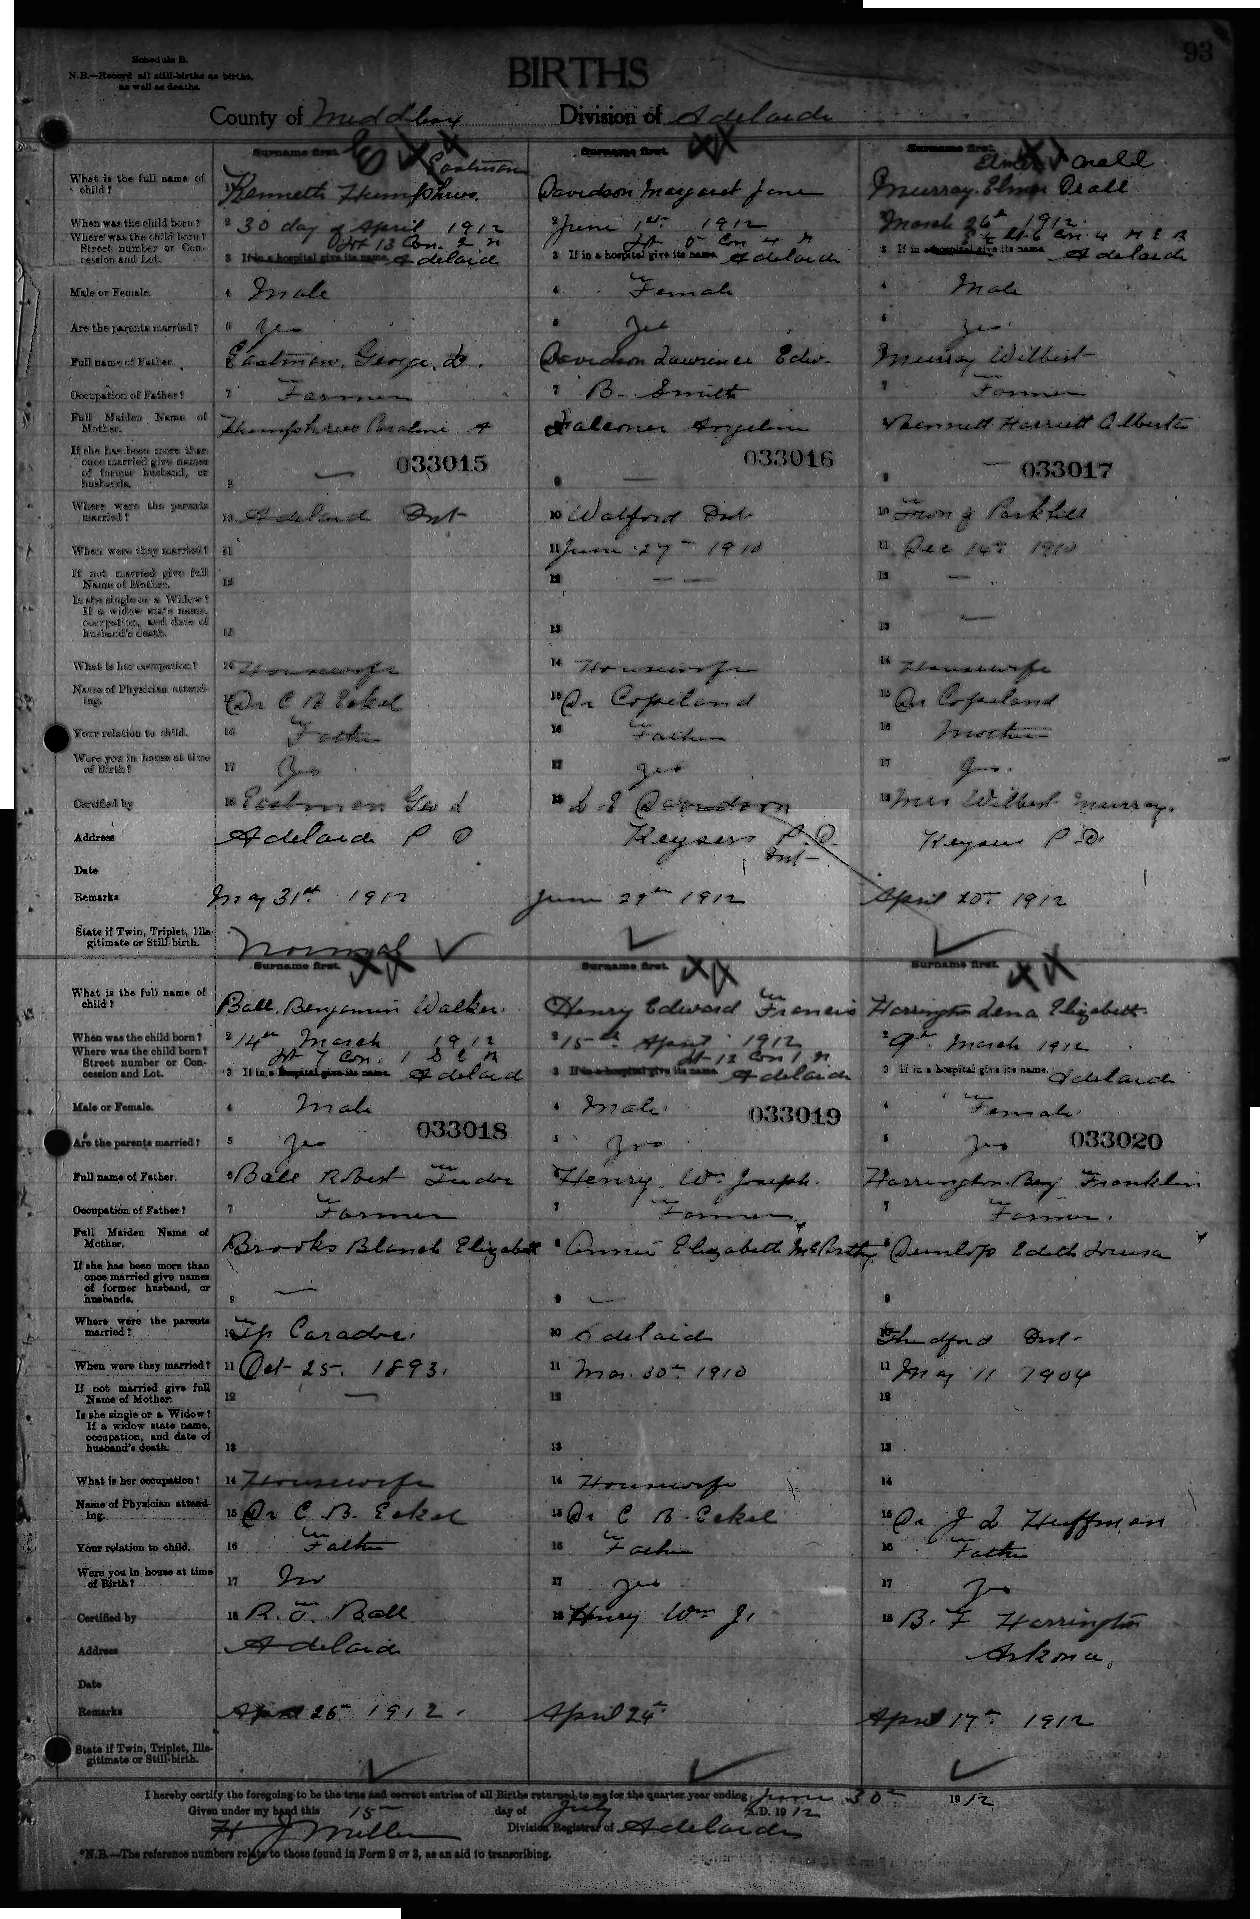 93
Schedule B.
N.B.—Record all still-births as births, as well as deaths.
BIRTHS
County of Middlesex Division of Adelaide
Surname first. Surname first. Surname first.
Eastman
What is the full name of child? Kenneth Humphries. Davidson Margaret Jane Murray. Elmer
When was the child born? 2 30 day of April 1912 2 June 1st 1912 2 March 26th 1912.
Where was the child born? Street number or Concession and Lot. Lot 13 Con. 2 N Con 4 N Con 4 N E R
3 If in a hospital give its name. Adelaide 3 If in a hospital give its name. Adelaide 3 If in a hospital give its name. Adelaide
Male or Female. 4 Male 4 Female 4 Male
Are the parents married? 5 Yes 5 Yes 5 Yes.
Full name of Father. Eastman, George. L. Davidson Lawrence Edw. Murray Wilbert
Occupation of Father? 7 Farmer 7 B. Smith 7 Farmer
Full Maiden Name of Mother. Humphries Caroline A Falconer Angeline Bennett Harriett Alberta
If she has been more than once married give names of former husband, or husbands. 9 — 033015 9 — 033016 9 — 033017
Where were the parents married? 10 Adelaide Ont 10 Watford Ont 10 Town of Parkhill
When were they married? 11 11 June 27th 1910 11 Dec 14th 1910
If not married give full Name of Mother. 12 12 — — 12 —
Is she single or a Widow? If a widow state name, occupation, and date of husband's death. 13 13 13 —
What is her occupation? 14 Housewife 14 Housewife 14 Housewife
Name of Physician attending. 15 Dr C B Eckel 15 Dr Copeland 15 Dr Copeland
Your relation to child. 16 Father 16 Father 16 Mother
Were you in house at time of Birth? 17 Yes 17 Yes 17 Yes.
Certified by 18 Eastman Geo L 18 L E Davidson 18 Mrs Wilbert Murray.
Address Adelaide P O Keysers P.O. Ont— Keysers P.O.
Date
Remarks May 31st 1912 June 29th 1912 April 20th 1912
State if Twin, Triplet, Illegitimate or Still-birth. Normal
Surname first. Surname first. Surname first.
What is the full name of child? Ball. Benjamin Walker. Henry Edward Francis Harrington Lena Elizabeth
When was the child born? 2 14th March 1912 2 15th April 1912 2 9th March 1912
Where was the child born? Street number or Concession and Lot. Lot 7 Con. 1 S E R Lot 12 Con 1 N
3 If in a hospital give its name. Adelaide 3 If in a hospital give its name. Adelaide 3 If in a hospital give its name. Adelaide
Male or Female. 4 Male 4 Male. 4 Female.
033018 033019 033020
Are the parents married? 5 Yes 5 Yes 5 Yes
Full name of Father. 6 Ball Robert Tudor Henry Wm Joseph. Harrington Benj Franklin
Occupation of Father? 7 Farmer 7 Farmer 7 Farmer.
Full Maiden Name of Mother. Brooks Blanch Elizabeth 8 Annie Elizabeth McCarthy 8 Dunlop Edith Louisa
If she has been more than once married give names of former husband, or husbands. 9 — 9 — 9
Where were the parents married? 10 Tp Caradoc. 10 Adelaide 10 Thedford Ont.
When were they married? 11 Oct 25. 1893. 11 Mar. 30th 1910 11 May 11 1904
If not married give full Name of Mother. 12 — 12 12
Is she single or a Widow? If a widow state name, occupation, and date of husband's death. 13 13 13
What is her occupation? 14 Housewife 14 Housewife 14
Name of Physician attending. 15 Dr C. B. Eckel 15 Dr C B. Eckel 15 Dr J L Huffman
Your relation to child. 16 Father 16 Father 16 Father
Were you in house at time of Birth? 17 No 17 Yes 17 Yes
Certified by 18 R. T. Ball 18 Henry Wm J. 18 B. F Harrington
Address Adelaide Arkona.
Date
Remarks April 26th 1912. April 24th April 17th 1912
State if Twin, Triplet, Illegitimate or Still-birth.
I hereby certify the foregoing to be the true and correct entries of all Births returned to me for the quarter year ending June 30th 1912
Given under my hand this 15th day of July A.D. 1912
H J Miller Division Registrar of Adelaide
*N.B.—The reference numbers relate to those found in Form 2 or 3, as an aid to transcribing.